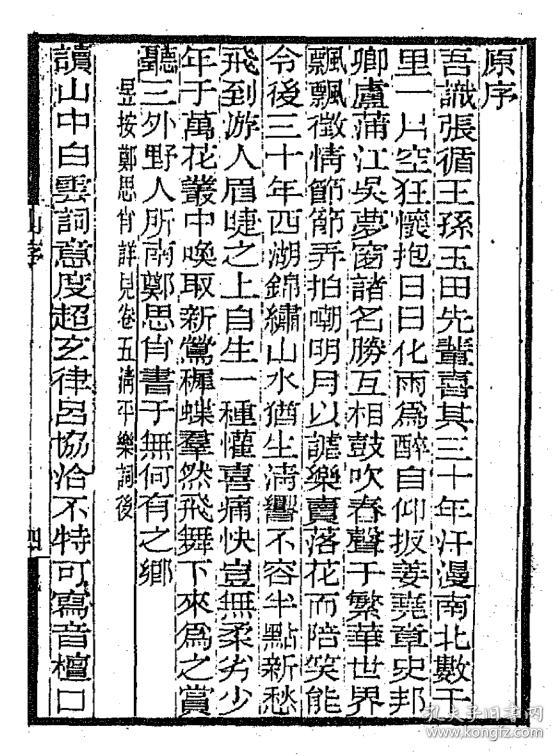 原序
吾識張循王孫玉田先輩喜其三十年汗漫南北數千
里一片空狂懷抱日日化雨爲醉自仰扳姜堯章史邦
卿盧蒲江吳夢窗諸名勝互相鼓吹春聲于繁華世界
飄飄徵情節節弄拍嘲明月以謔樂賣落花而陪笑能
令後三十年西湖錦繡山水猶生淸響不容半點新愁
飛到游人眉睫之上自生一種懽喜痛快豈無柔劣少
年于萬花叢中喚取新鶯穉蝶羣然飛舞下來爲之賞
聽三外野人所南鄭思肖書于無何有之鄉
昱按鄭思肖詳見卷五淸平樂詞後
讀山中白雲詞意度超玄律呂協洽不特可寫音檀口
山序
四
孔夫子旧书网
www.kongfz.com